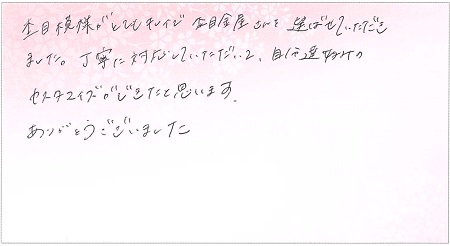 杢目模様がとてもキレイで杢目金屋さんを選ばせていただき
ました。丁寧に対応していただいて、自分達好みの
カスタマイズができたと思います。
ありがとうございました